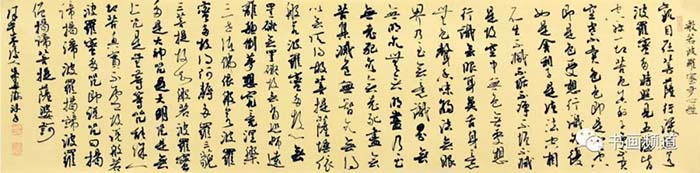 般若波羅蜜多心經
觀自在菩薩行深般若
波羅蜜多時照見五蘊皆
空度一切苦厄舍利子色不異
空空不異色色即是空空
即是色受想行識亦復
如是舍利子是諸法空相
不生不滅不垢不淨不增不減
是故空中無色無受想
行識無眼耳鼻舌身意
無色聲香味觸法無眼
界乃至無意識界無
無明亦無無明盡乃至
無老死亦無老死盡無
苦集滅道無智亦無得
以無所得故菩提薩埵依
般若波羅蜜多故心無
罣礙無罣礙故無有恐怖遠
離顛倒夢想究竟涅槃
三世諸佛依般若波羅
蜜多故得阿耨多羅三藐
三菩提故知般若波羅蜜
多是大神咒是大明咒是無
上咒是無等等咒能除一
切苦真實不虛故說般若
波羅蜜多咒即說咒曰揭
諦揭諦波羅揭諦波羅
僧揭諦菩提薩婆訶
书画频道